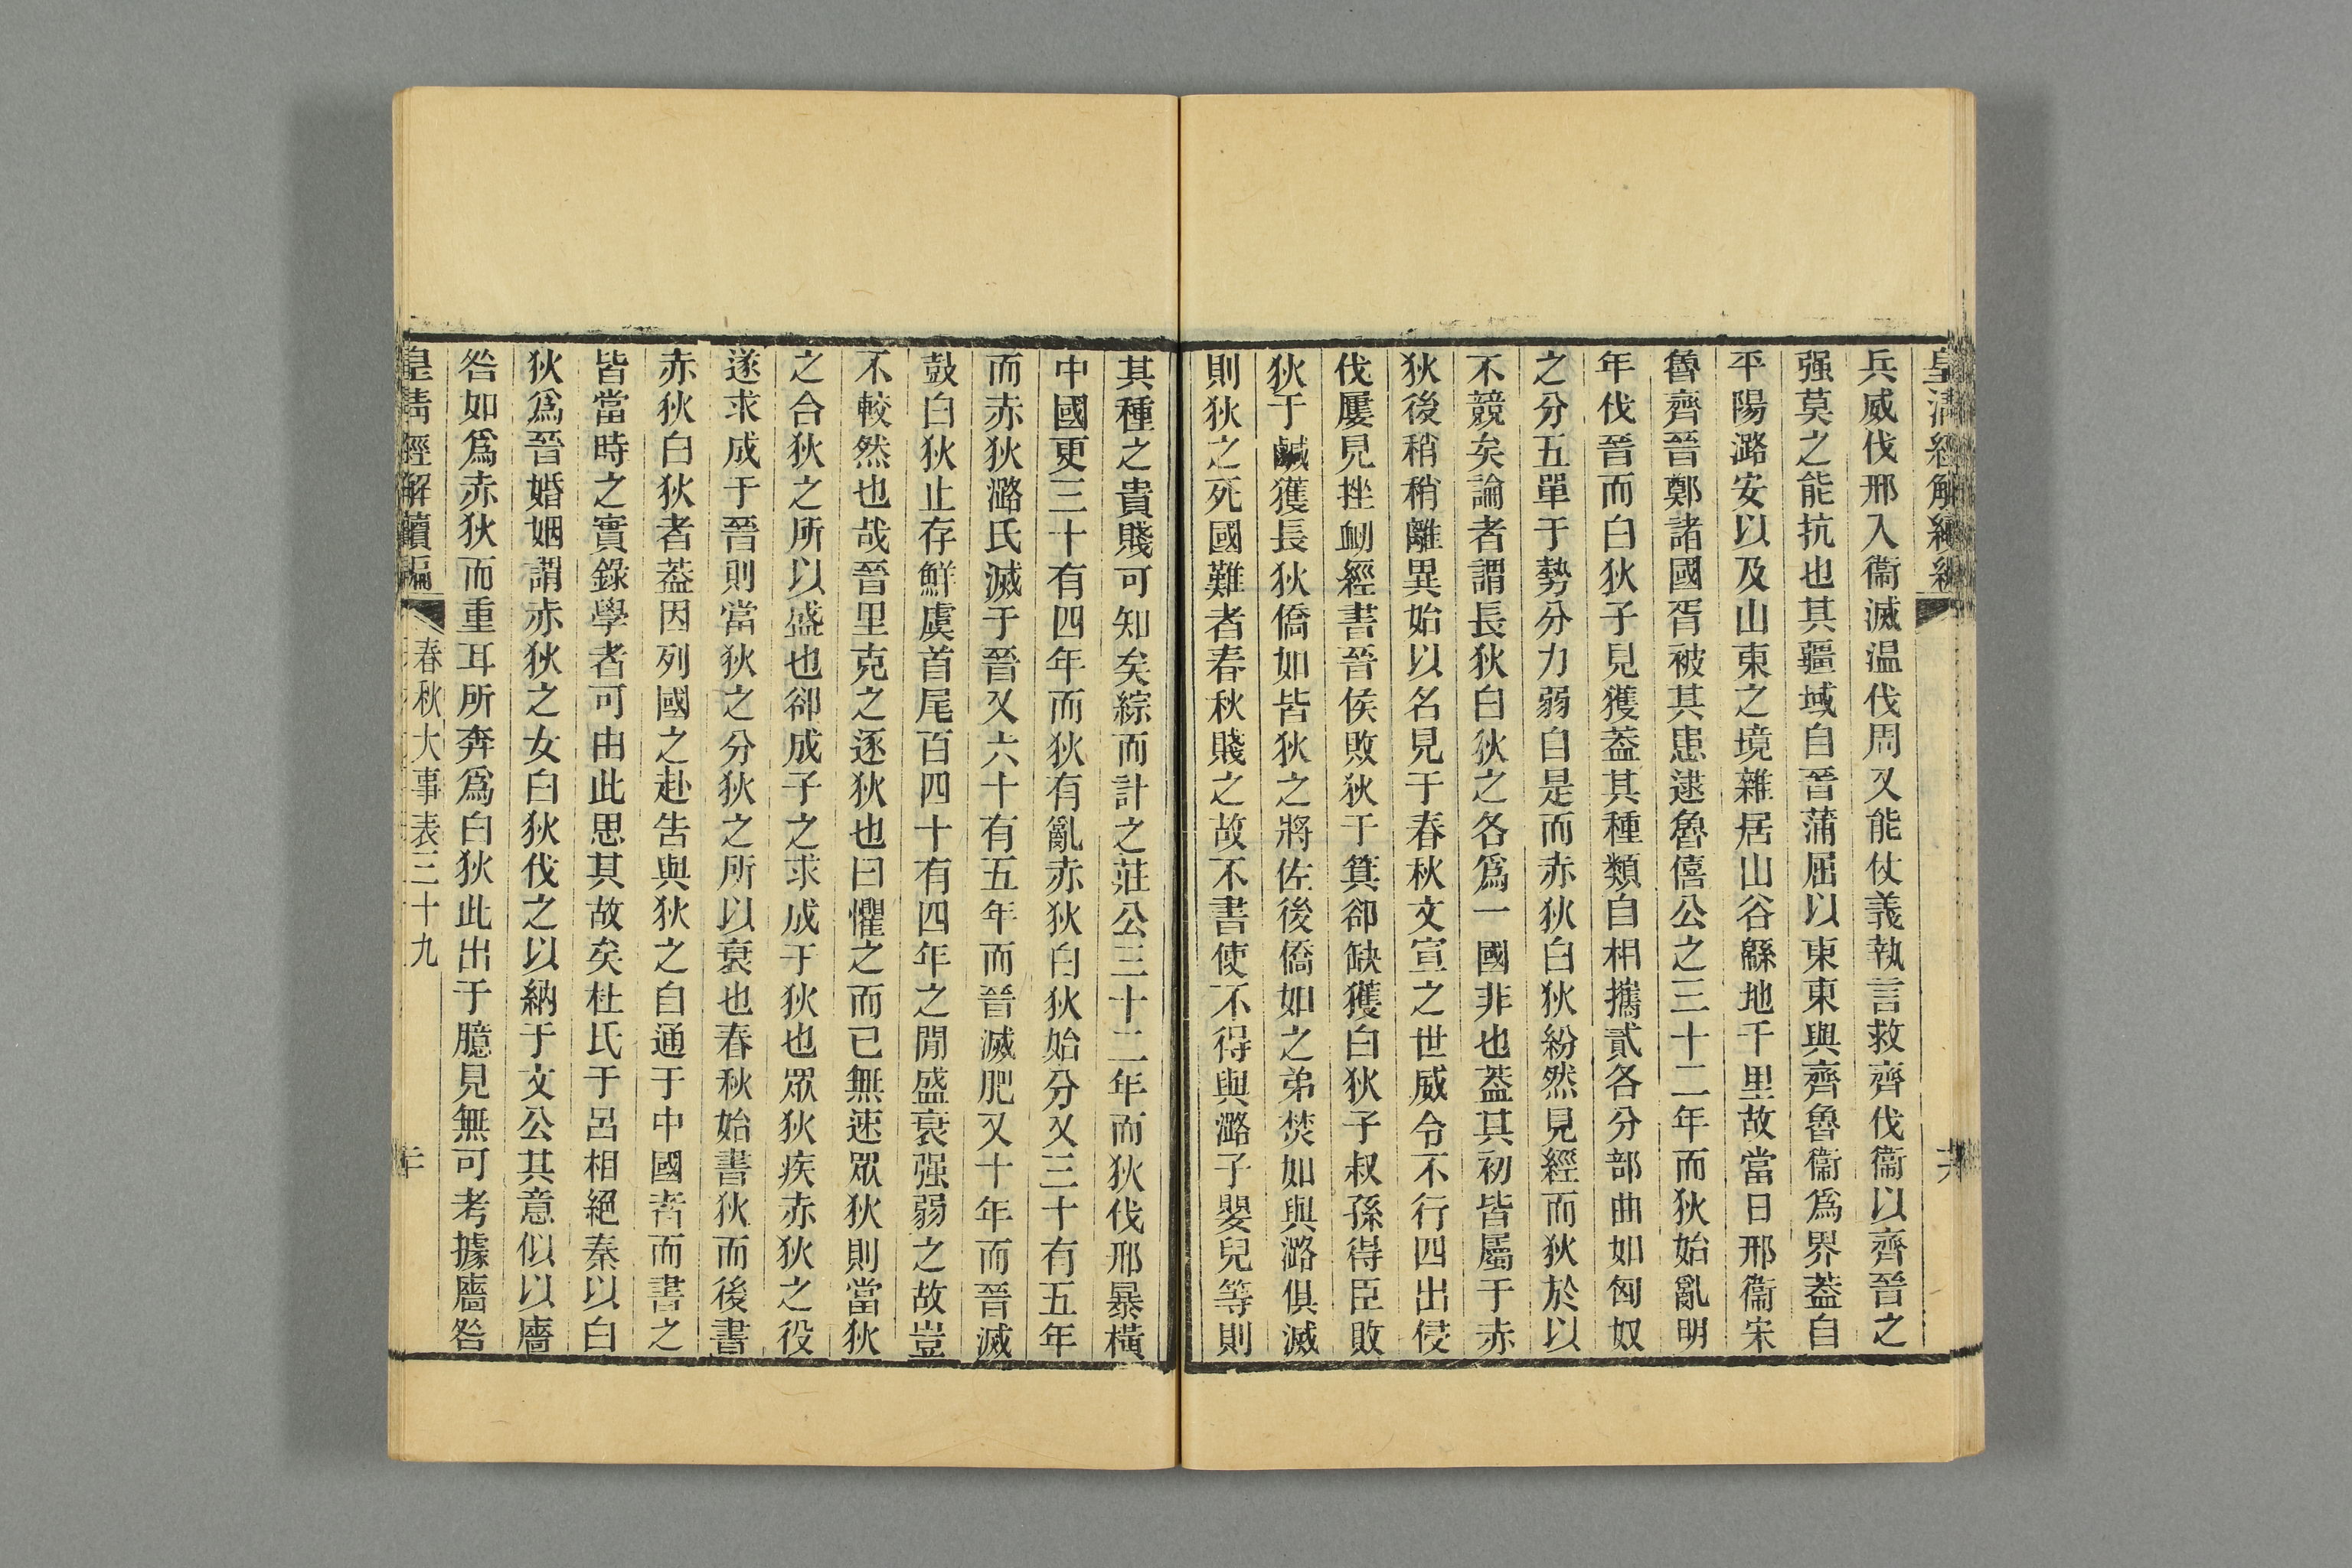 皇清經解續編
兵威伐邢入衞滅温伐周又能仗義執言救齊伐衞以齊晉之
强莫之能抗也其疆域自晉蒲屈以東東與齊魯衞爲界葢自
平陽潞安以及山東之境雜居山谷緜地千里故當日邢衞宋
魯齊晉鄭諸國胥被其患逮魯僖公之三十二年而狄始亂明
年伐晉而白狄子見獲葢其種類自相攜貳各分部曲如匈奴
之分五單于勢分力弱自是而赤狄白狄紛然見經而狄於以
不競矣論者謂長狄白狄之各爲一國非也葢其初皆屬于赤
狄後稍稍離異始以名見于春秋文宣之世威令不行四出侵
伐屢見挫衂經書晉侯敗狄于箕郤缺獲白狄子叔孫得臣敗
狄于鹹獲長狄僑如皆狄之將佐後僑如之弟焚如與潞俱滅
則狄之死國難者春秋賤之故不書使不得與潞子嬰兒等則
其種之貴賤可知矣綜而計之莊公三十二年而狄伐邢暴橫
中國更三十有四年而狄有亂赤狄白狄始分又三十有五年
而赤狄潞氏滅于晉又六十有五年而晉滅肥又十年而晉滅
鼓白狄止存鮮虞首尾百四十有四年之閒盛衰强弱之故豈
不較然也哉晉里克之逐狄也曰懼之而已無速眾狄則當狄
之合狄之所以盛也郤成子之求成于狄也眾狄疾赤狄之役
遂求成于晉則當狄之分狄之所以衰也春秋始書狄而後書
赤狄白狄者葢因列國之赴告與狄之自通于中國者而書之
皆當時之實錄學者可由此思其故矣杜氏于呂相絕秦以白
狄爲晉婚姻謂赤狄之女白狄伐之以納于文公其意似以廧
咎如爲赤狄而重耳所奔爲白狄此出于臆見無可考據廧咎
皇清經解續編
春秋大事表三十九